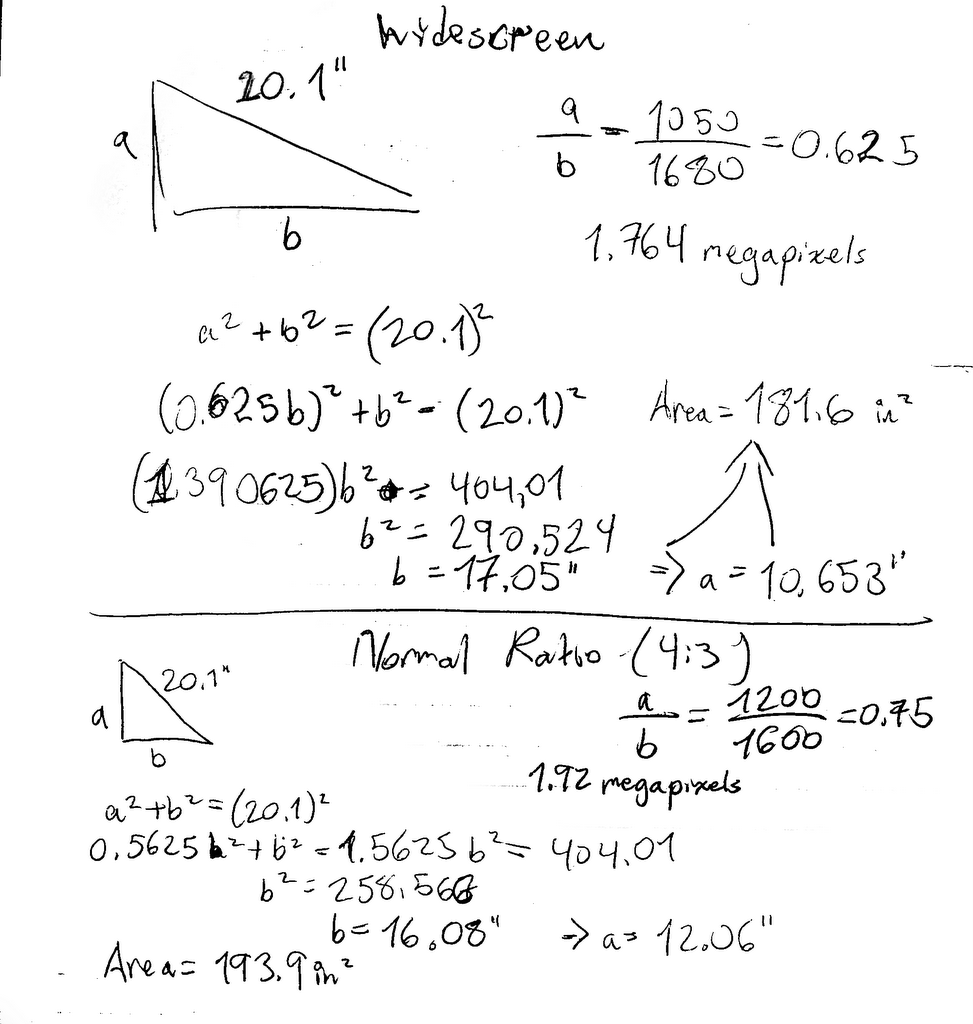 Widescreen
20.1"
a
b
a/b = 1050/1680 = 0.625
1.764 megapixels
a² + b² = (20.1)²
(0.625b)² + b² = (20.1)²
Area = 181.6 in²
(1.390625)b² = 404.01
b² = 290.524
b = 17.05" => a = 10.653"
Normal Ratio (4:3)
20.1"
a
b
a/b = 1200/1600 = 0.75
1.92 megapixels
a² + b² = (20.1)²
0.5625b² + b² = 1.5625b² = 404.01
b² = 258.566
b = 16.08" => a = 12.06"
Area = 193.9 in²